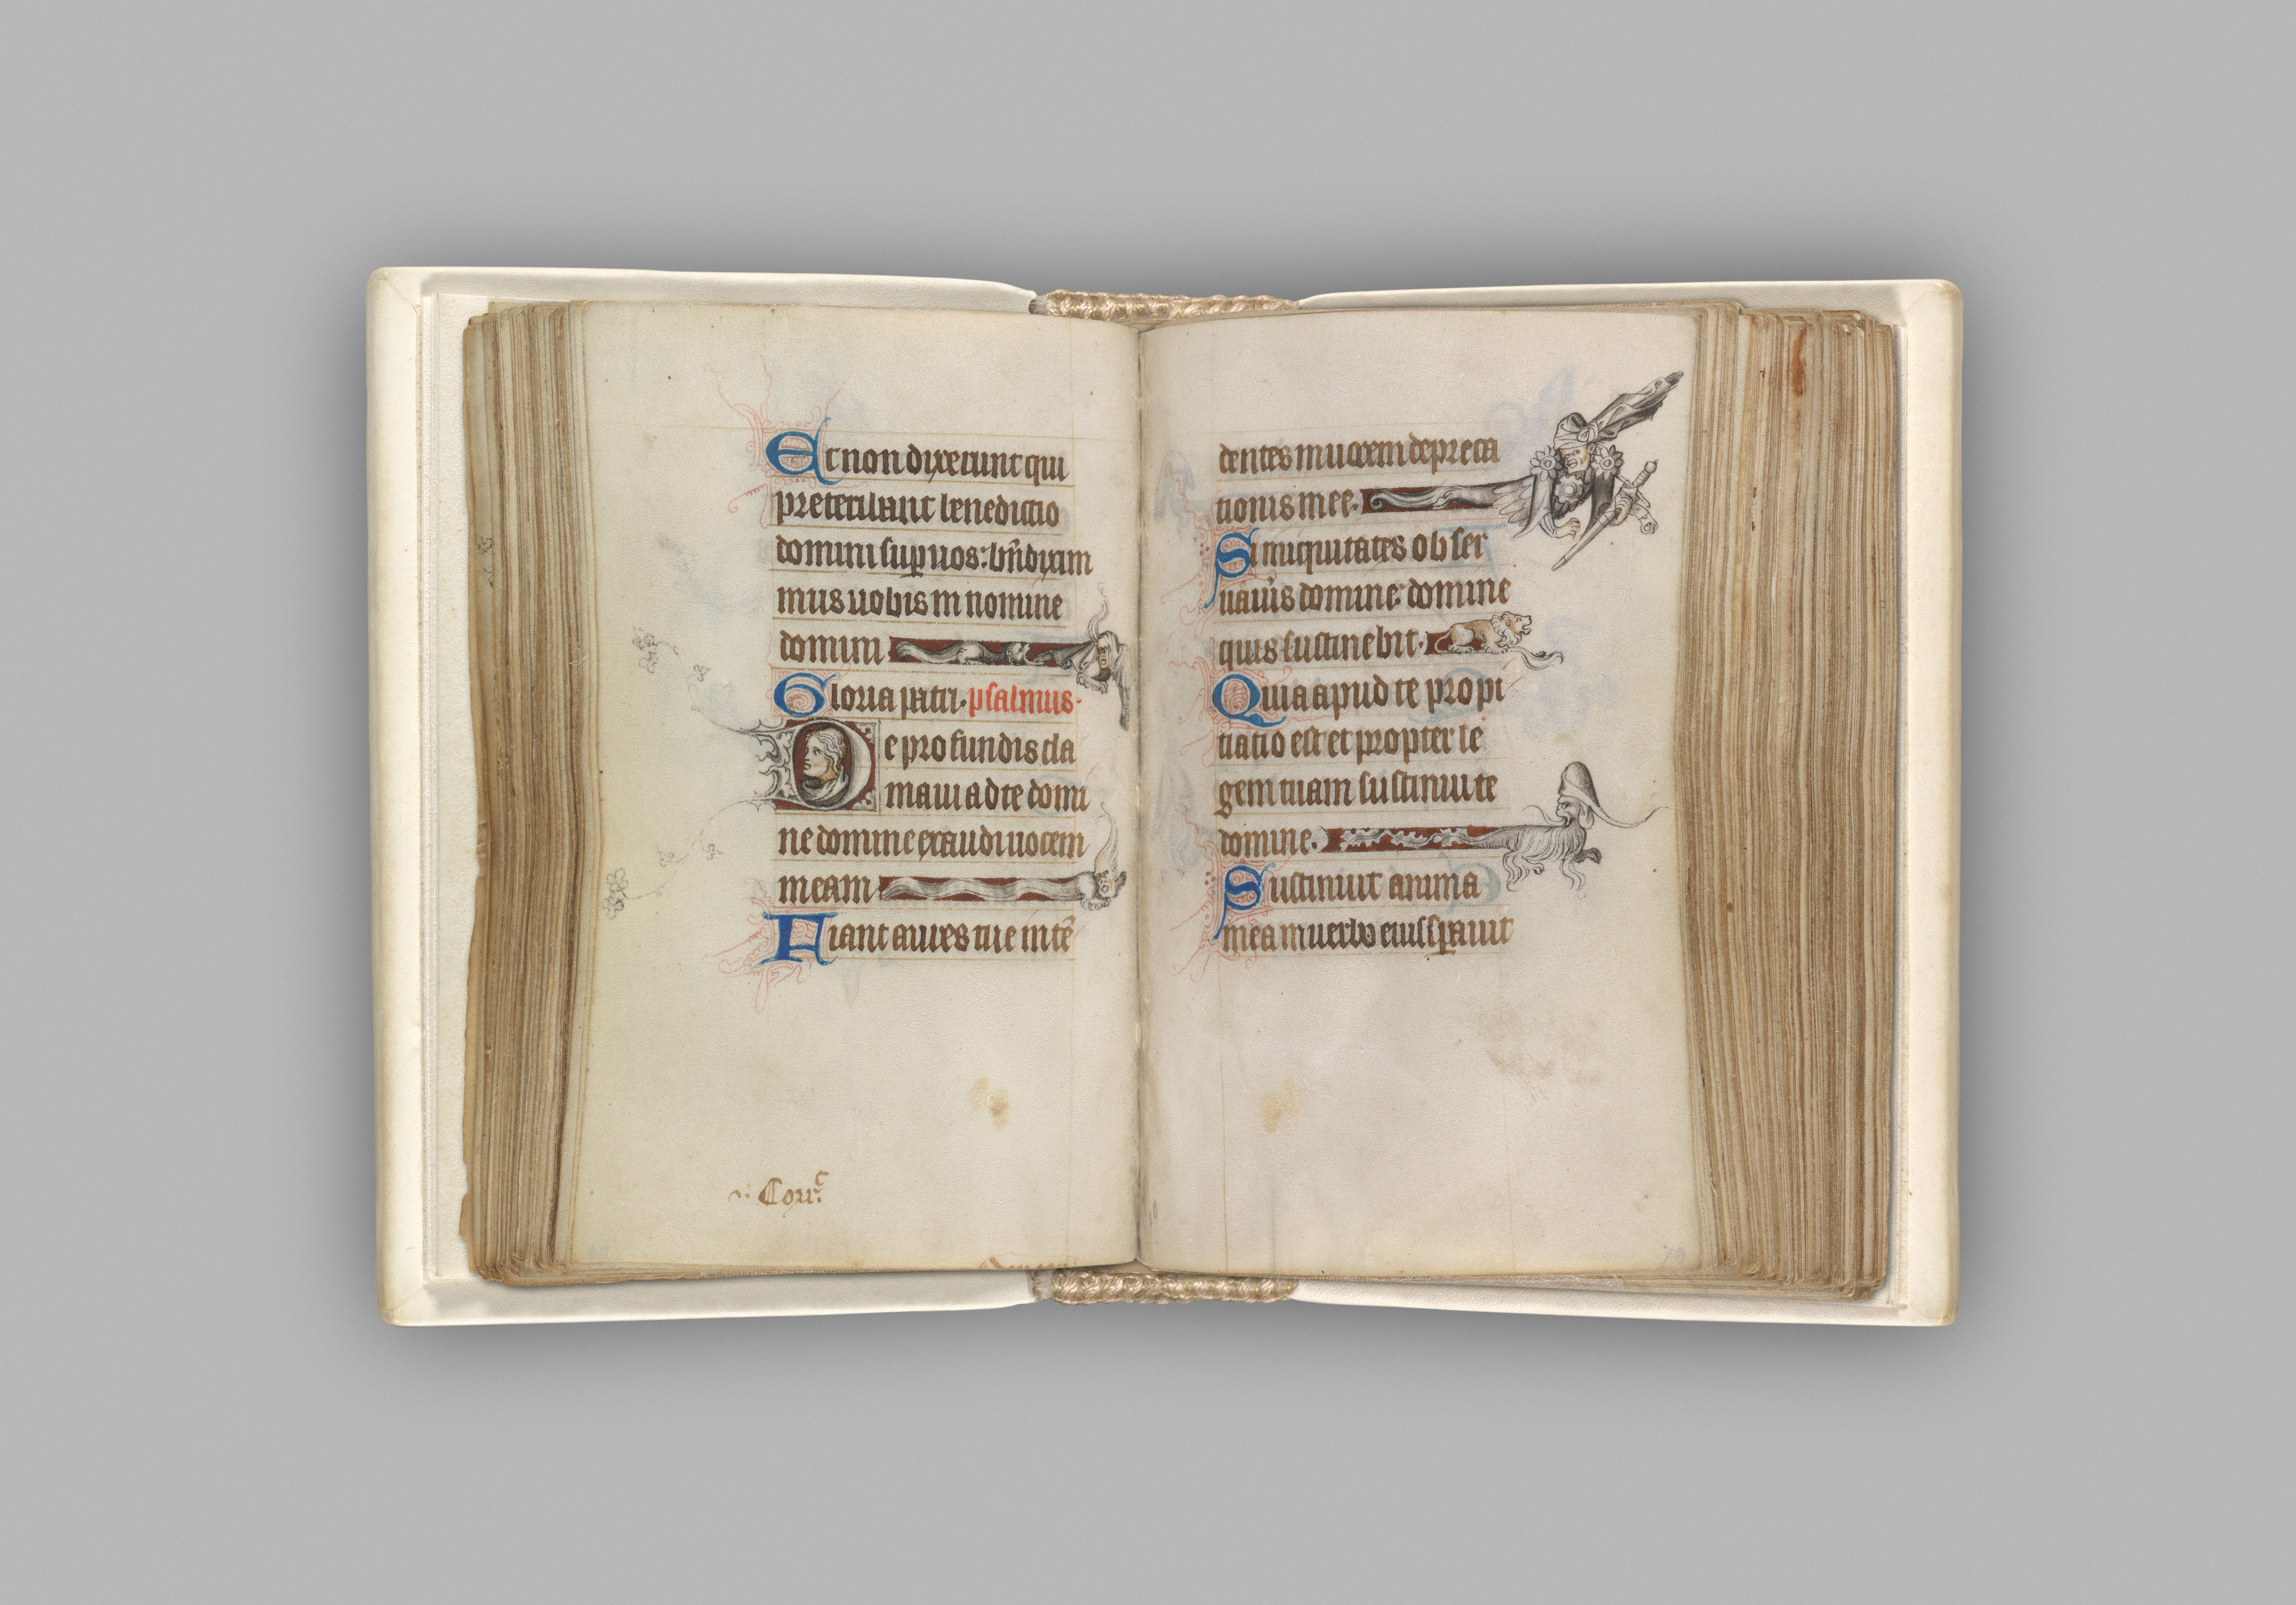 Et non dixerunt qui
preteribant benedictio
domini sup uos: bn̄dixim
mus uobis in nomine
domini
Gloria patri. psalmus.
De profundis cla
maui ad te domi
ne domine exaudi uocem
meam
Fiant aures tue intē
Corr.c
dentes in uocem depreca
tionis mee.
Si iniquitates obser
uau̓is domine: domine
quis sustinebit.
Quia apud te propi
tiatio est et propter le
gem tuam sustinui te
domine.
Sustinuit anima
mea in uerbo eius sꝑauit